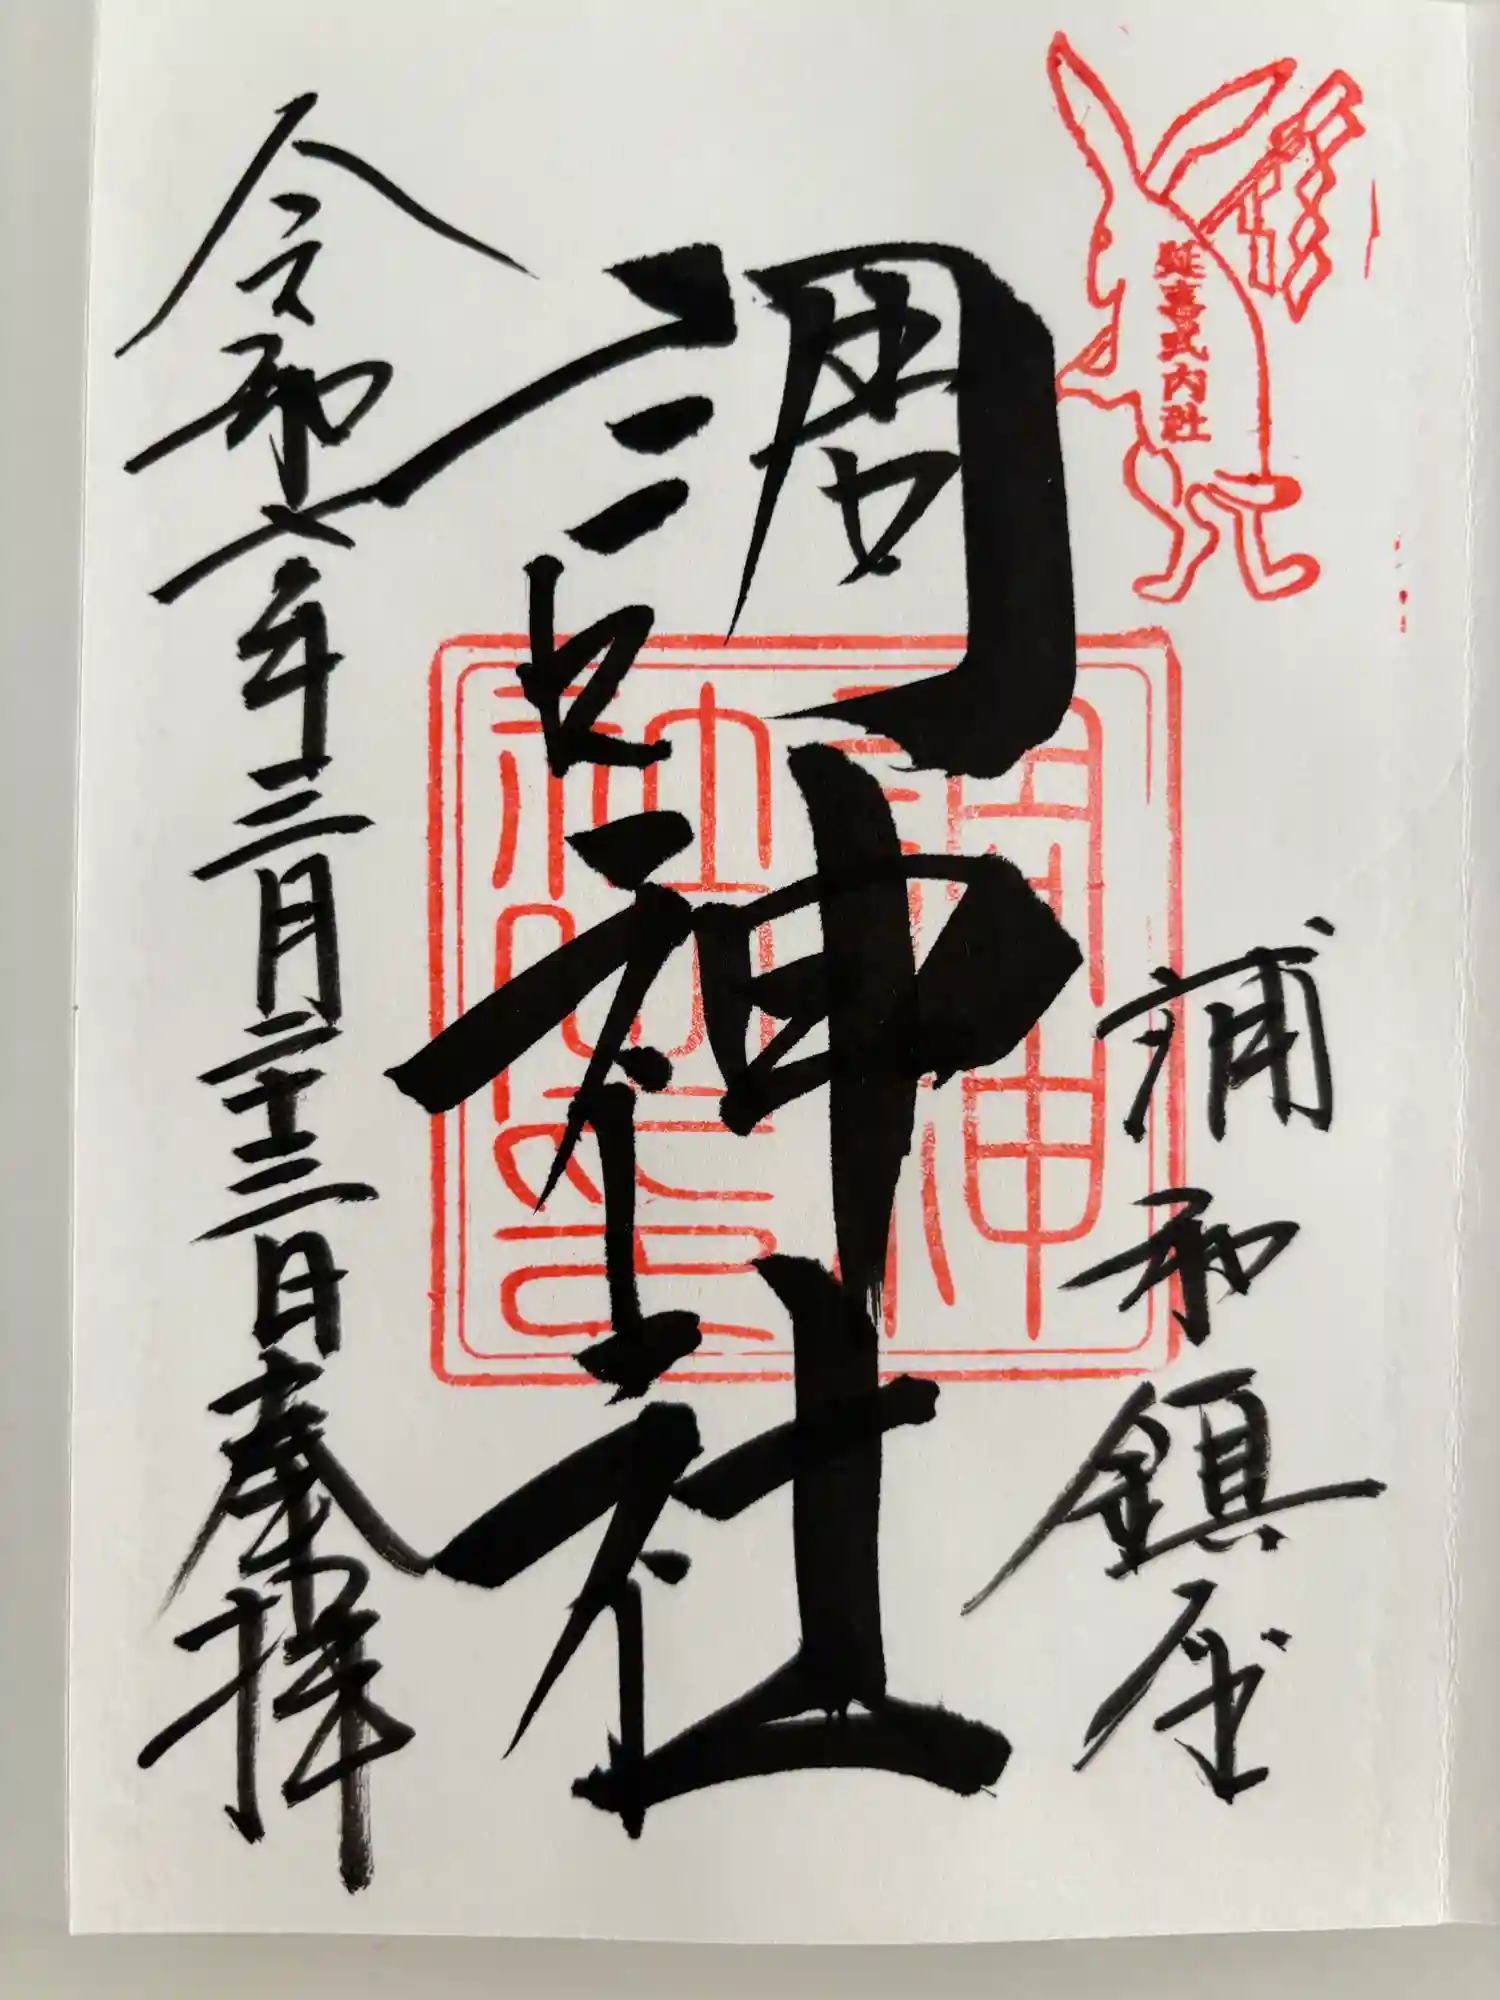 延喜式内社
浦和鎮座
調神社
調神社之印
令和七年三月二十三日奉拝